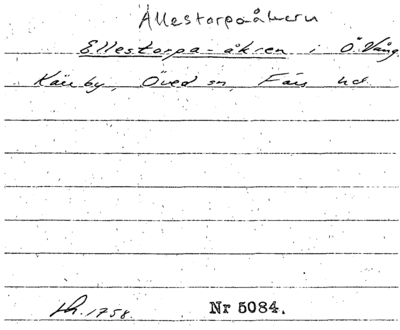 Ällestorpa-åkern
Ellestorpa-åkren i Ö. Vång,
Käreby, Öved sn, Färs hd.
Lh. 1758. Nr 5084.